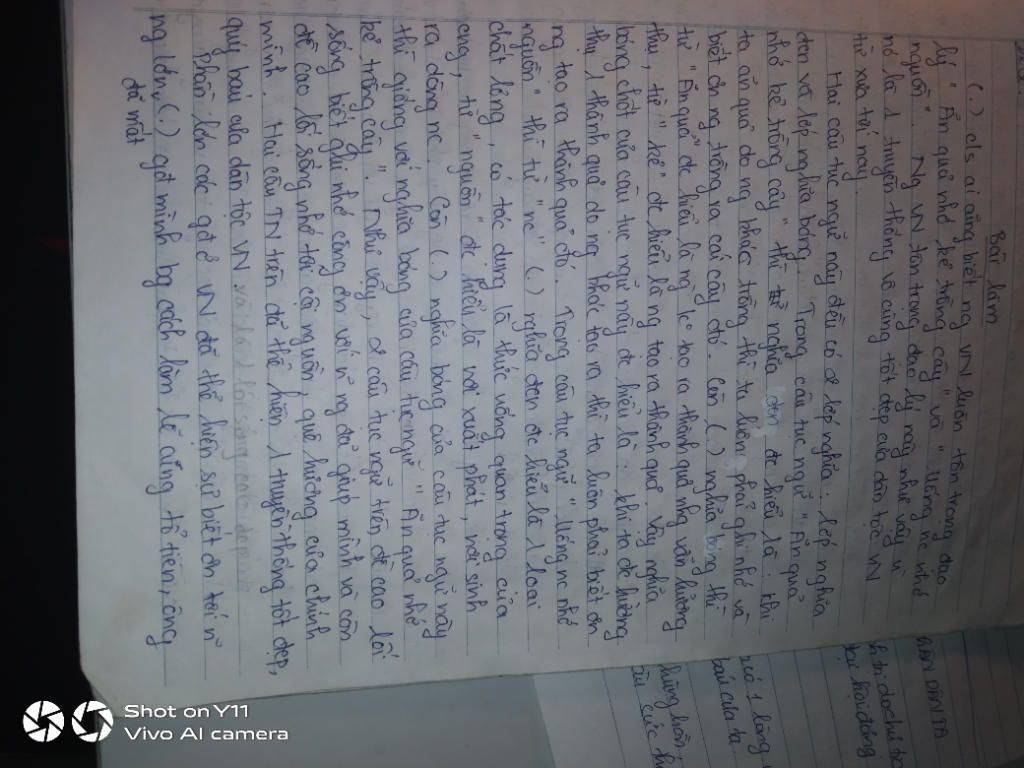 Bài làm
(.) c/s ai cũng biết ng VN luôn tôn trọng đạo
lý " Ăn quả nhớ kẻ trồng cây" và " Uống nc nhớ
nguồn". Ng VN tôn trọng đạo lý này như vậy vì
nó là 1 truyền thống vô cùng tốt đẹp của dân tộc VN
từ xưa tới nay.
Hai câu tục ngữ này đều có 2 lớp nghĩa: lớp nghĩa
đen và lớp nghĩa bóng. Trong câu tục ngữ " Ăn quả
nhớ kẻ trồng cây" thì nghĩa đen đc hiểu là: khi
ta ăn quả do ng khác trồng thì ta luôn phải ghi nhớ và
biết ơn ng trồng ra cái cây đó. Còn (.) nghĩa bóng thì
từ " Ăn quả" đc hiểu là ng k tạo ra thành quả nhg vẫn hưởng
thụ, từ " kẻ" đc hiểu là ng tạo ra thành quả. Vậy nghĩa
bóng chốt của câu tục ngữ này đc hiểu là: khi ta đc hưởng
thụ 1 thành quả do ng khác tạo ra thì ta luôn phải biết ơn
ng tạo ra thành quả đó. Trong câu tục ngữ " Uống nc nhớ
nguồn" thì từ " nc" (.) nghĩa đen đc hiểu là 1 loại
chất lỏng, có tác dụng là thức uống quan trọng của
ra dòng nc. Còn (.) nghĩa bóng của câu tục ngữ này
thì giống với nghĩa bóng của câu tục ngữ " Ăn quả nhớ
kẻ trồng cây". Như vậy, 2 câu tục ngữ trên đề cao lối
sống biết ghi nhớ công ơn với n~ ng đã giúp mình và còn
đề cao lối sống nhớ tới cội nguồn, quê hương của chính
mình. Hai câu TN trên đã thể hiện 1 truyền thống tốt đẹp,
quý báu của dân tộc VN
Phần lớn các gđ ở VN đã thể hiện sự biết ơn tới n~
ng lớn (.) gđ mình bg cách làm lễ cúng tổ tiên, ông
đã mất